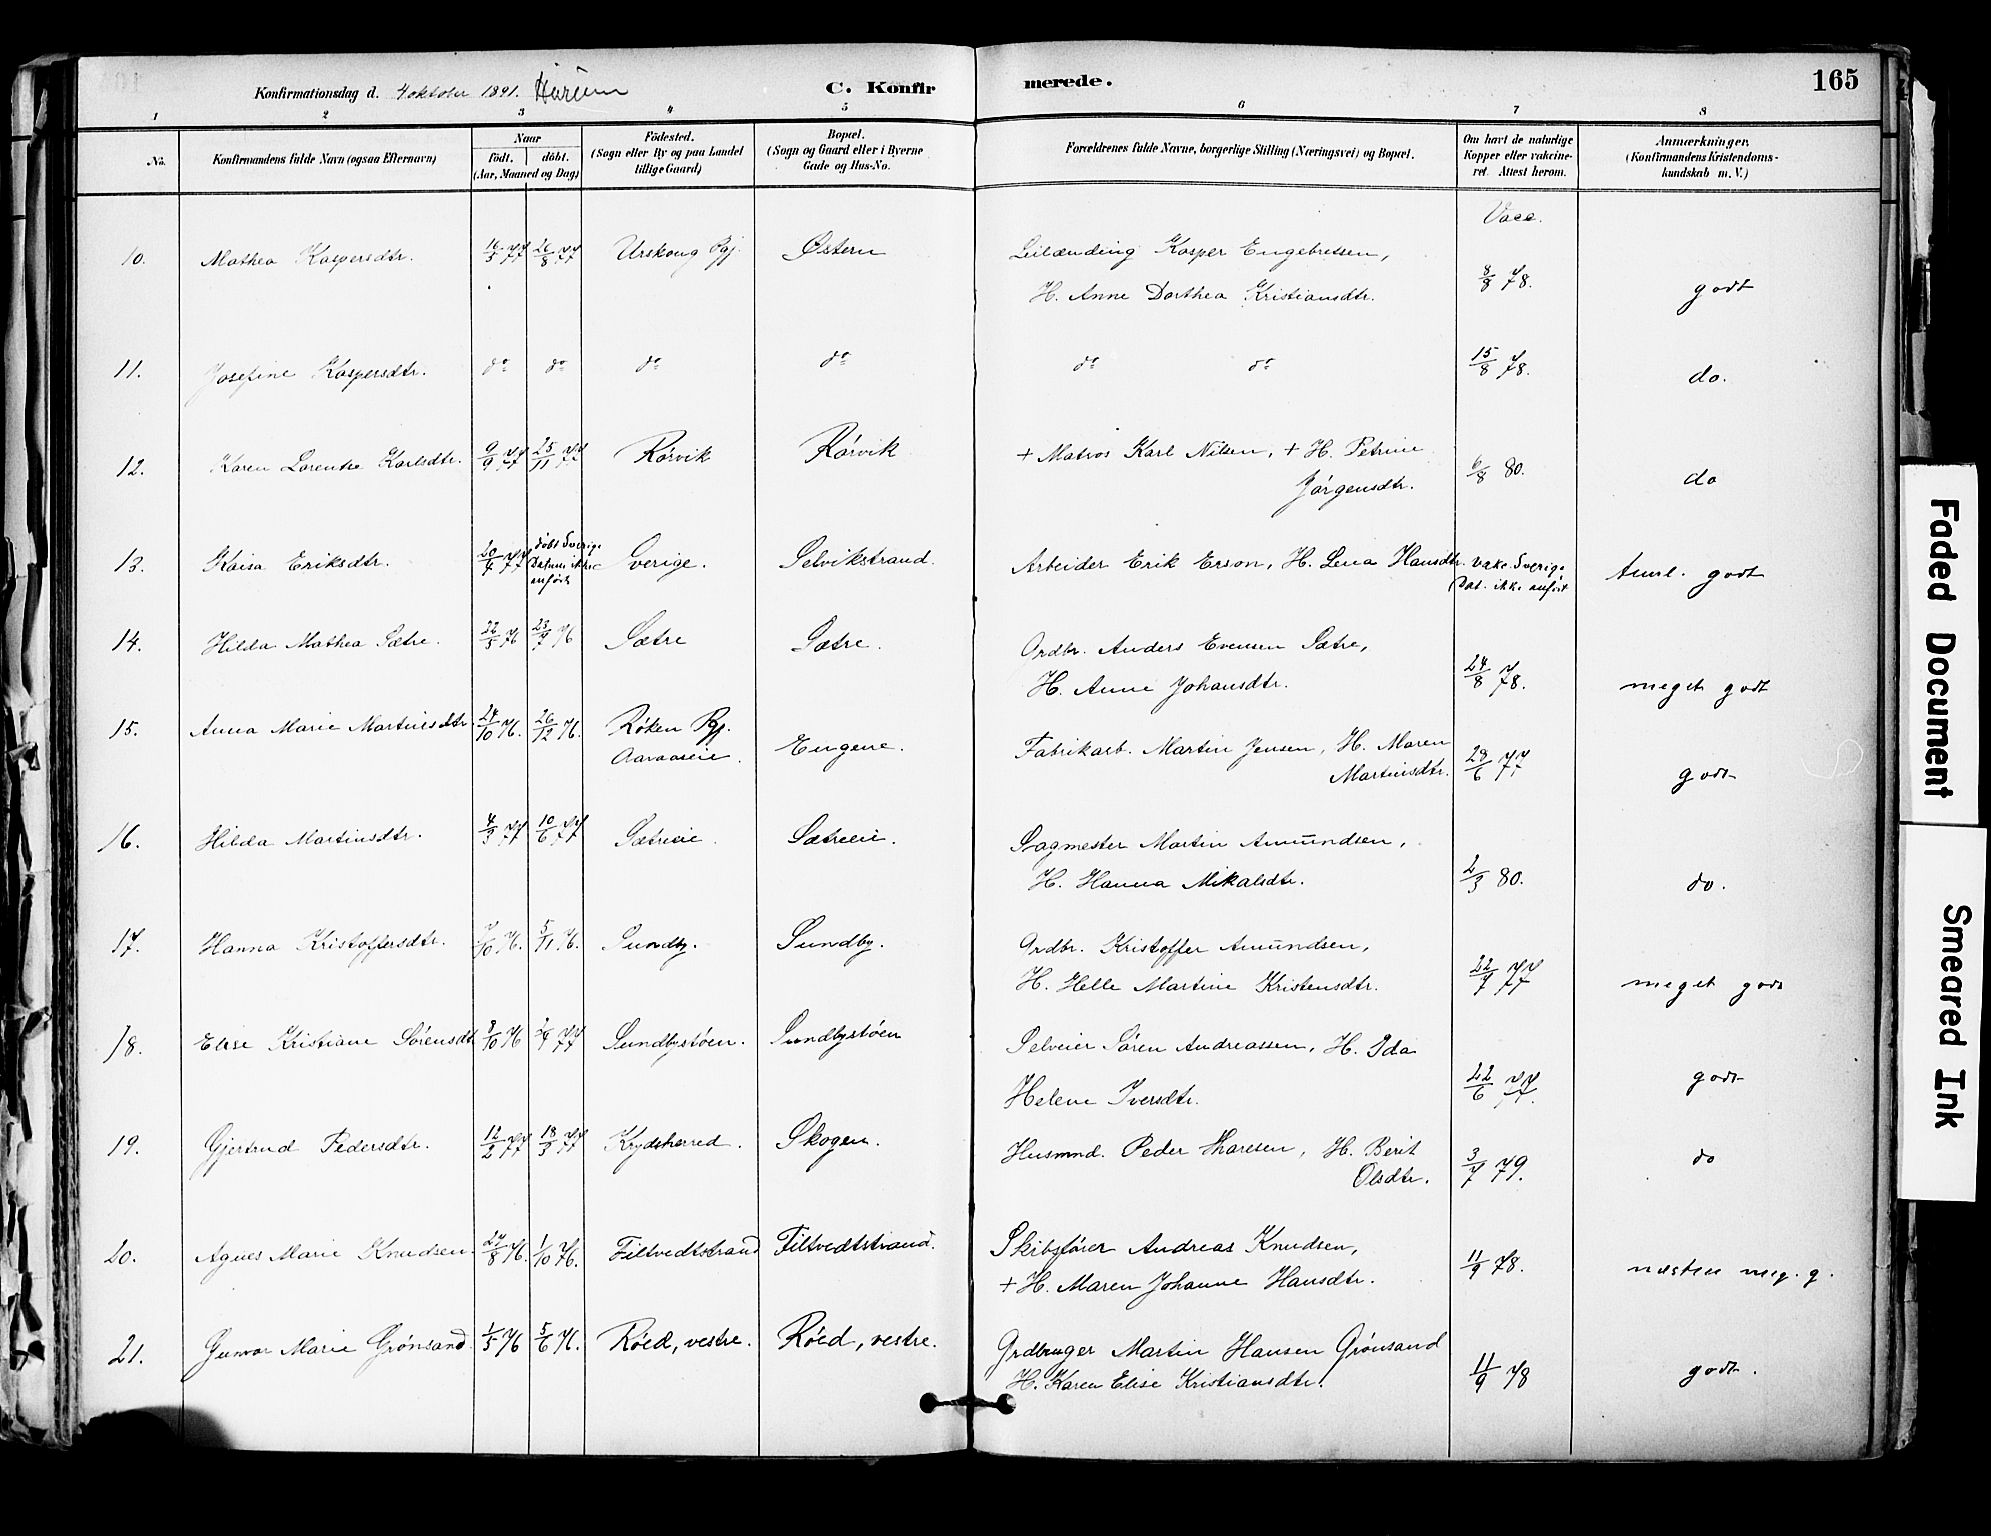 Konfirmationsdag d. 4 oktober 1891. Hurum C. Konfirmerede. 165
1 2 3 4 5 6 7 8
No. Konfirmandens fulde Navn (ogsaa Efternavn) Naar født. døbt. (Aar, Maaned og Dag) Födested. (Sogn eller By og paa Landet tillige Gaard) Bopæl. (Sogn og Gaard eller i Byerne Gade og Hus-No. Forældrenes fulde Navne, borgerlige Stilling (Næringsvei) og Bopæl. Om havt de naturlige Kopper eller vakcineret. Attest herom. Anmærkninger. (Konfirmandens Kristendomskundskab m. V.)
Vacc.
10. Mathea Kaspersdtr. 16/5 77 26/8 77 Urskoug Pgj. Østern Leilænding Kasper Engebretsen,
H. Anne Dorthea Kristiansdtr. 8/8 78. godt
11. Josefine Kaspersdtr. do do do do do do 15/8 78. do.
12. Karen Lorentse Karlsdtr. 9/9 77 25/11 77 Rörvik Rörvik + Matros Karl Nilsen, + H. Petrine
Jörgensdtr. 6/8 80. do
13. Kaisa Eriksdtr. 20/4 77 döbt Sverige Datum ikke anfört Sverige. Selvikstrand. Arbeider Erik Erson, H. Lena Hansdtr. vakc. Sverige
Dat. ikke anfört godt
14. Hilda Mathea Sætre. 22/5 76 23/7 76 Sætre Sætre. Grdbr. Anders Evensen Sætre,
H. Anne Johansdtr. 24/8 78. meget godt
15. Anna Marie Martinsdtr. 24/10 76. 26/12 76. Røken Pgj.
Aaraaseie. Engene. Fabrikarb. Martin Jensen, H. Maren
Martinsdtr. 28/6 77 godt
16. Hilda Martinsdtr. 4/3 77 10/6 77 Sætreeie. Sætreeie. Sagmester Martin Amundsen,
H. Hanna Mikalsdtr. 2/3 80. do.
17. Hanna Kristoffersdtr. 7/10 76. 5/11 76. Sundby. Sundby. Grdbr. Kristoffer Amundsen,
H. Helle Martine Kristensdtr. 22/7 77 meget godt
18. Elise Kristiane Sörensdtr. 3/10 76 2/4 77 Sundbystöen. Sundbystöen Selveier Sören Andreassen, H. Ida
Helene Iversdtr. 22/6 77. godt
19. Gjertrud Pedersdtr. 12/2 77 18/3 77 Krydsherred. Skogen. Husmnd. Peder Tharesen, H. Berit
Olsdtr. 3/7 79. do
20. Agnes Marie Knudsen. 27/8 76. 1/10 76. Filtvedtstrand Filtvedtstrand. Skibsförer Andreas Knudsen,
+ H. Maren Johanne Hansdtr. 11/9 78. næsten meg. g.
21. Gunvor Marie Grönsand. 1/5 76 5/6 76. Röed, vestre. Röed, vestre. Grdbruger Martin Hansen Grönsand
H. Karen Elise Kristiansdtr. 11/9 78 godt.
Faded Document
Smeared Ink